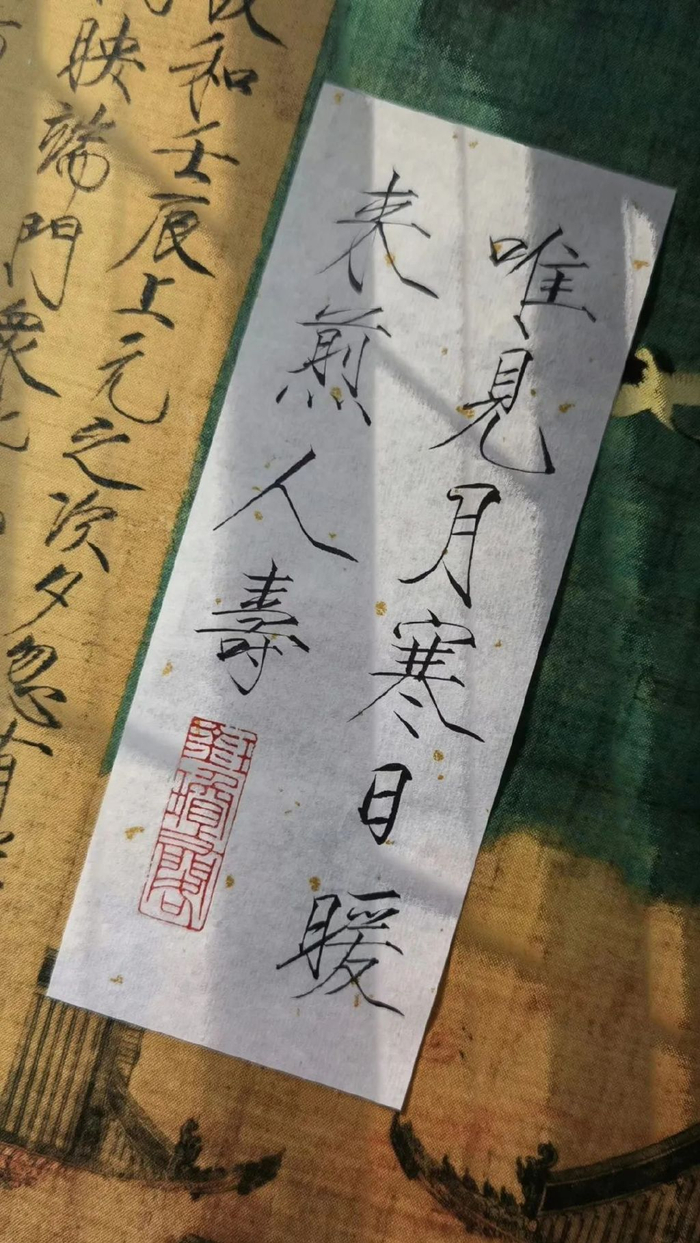 唯見月寒日暖
来煎人壽
和壬辰上元之次夕忽有
映端門衆